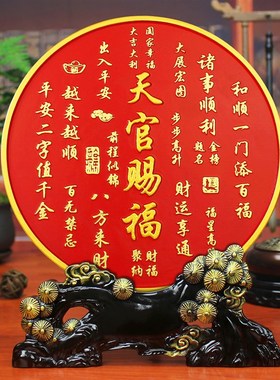 和顺一门添百福
诸事顺利
金榜
题名
福星高
大展宏图
步步高升
财运享通
国家幸福
大吉大利
天官赐福
财福
聚纳
出入平安
前程似锦
八方来财
越来越顺
百无禁忌
平安二字值千金